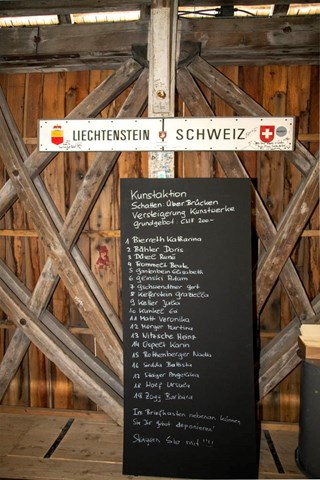 LIECHTENSTEIN SCHWEIZ
Kunstaktion
Schatten: Über.Brücken
Versteigerung Kunstwerke
grundgebot: CHF 200.-
1 Bierreth Katharina
2 Bühler Doris
3 Dösel René
4 Frommelt Beate
5 Gantenbein Elisabeth
6 Glinski Adam
7 Gschwendtner Gert
8 Keferstein Graziella
9 Keller Julia
10 Kunkel Evi
11 Matt Veronika
12 Merger Martina
13 Nitsche Heinz
14 Ospelt Karin
15 Rothenberger Nada
16 Battista
17 Steiger Angelika
18 Wolf Ursula
19 Zogg Barbara
Im Briefkasten nebenan können
Sie Ihr Gebot deponieren.
Steigern Sie mit !!!